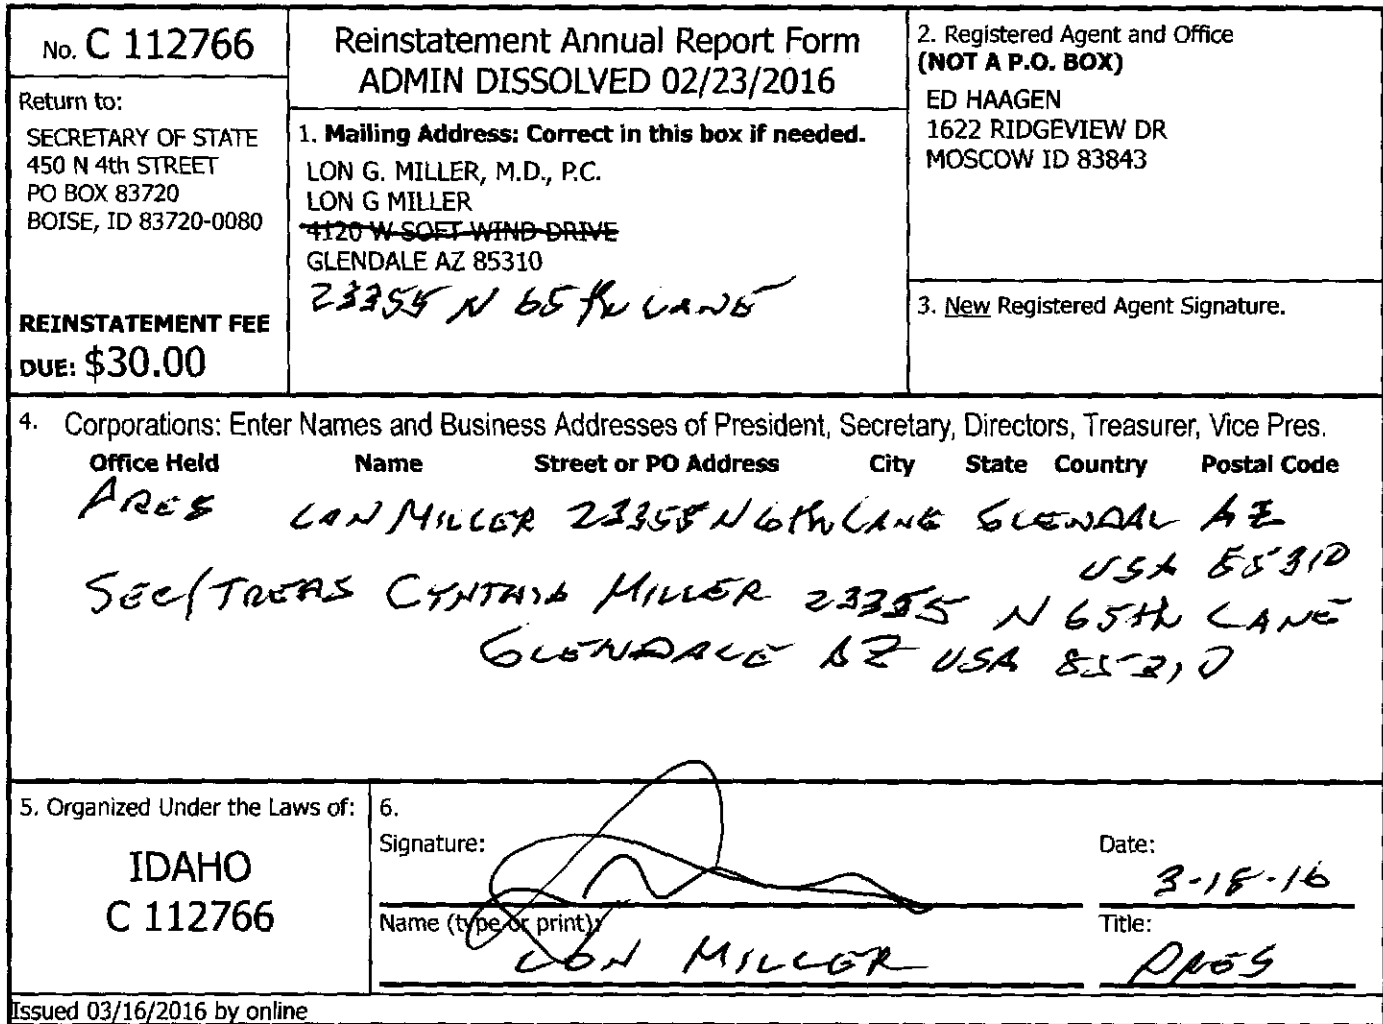 No. C 112766
Return to:
SECRETARY OF STATE
450 N 4th STREET
PO BOX 83720
BOISE, ID 83720-0080
REINSTATEMENT FEE
DUE: $30.00
Reinstatement Annual Report Form
ADMIN DISSOLVED 02/23/2016
1. Mailing Address: Correct in this box if needed.
LON G. MILLER, M.D., P.C.
LON G MILLER
4120 W SOFT WIND DRIVE
GLENDALE AZ 85310
23355 N 65th LANE
2. Registered Agent and Office
(NOT A P.O. BOX)
ED HAAGEN
1622 RIDGEVIEW DR
MOSCOW ID 83843
3. New Registered Agent Signature.
4. Corporations: Enter Names and Business Addresses of President, Secretary, Directors, Treasurer, Vice Pres.
Office Held Name Street or PO Address City State Country Postal Code
PRES LON MILLER 23355 N 6th LANE GLENDAL AZ
USA 85310
SEC/TREAS CYNTHIA MILLER 23355 N 65th LANE
GLENDALE AZ USA 85310
5. Organized Under the Laws of:
IDAHO
C 112766
6.
Signature:
Date:
3-18-16
Name (type or print):
LON MILLER
Title:
PRES
Issued 03/16/2016 by online